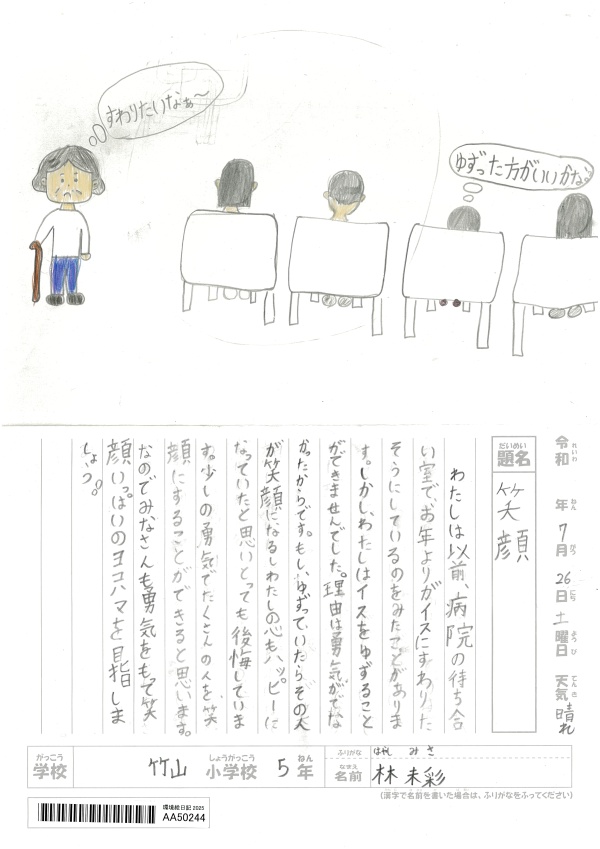 すわりたいなぁ〜
ゆずった方がいいかな。
令和 年 7月 26日 土曜日 天気 晴れ
れいわ ねん がつ にち ようび てんき
だいめい
題名
笑顔
わたしは以前、病院の待ち合
い室で、お年よりがイスにすわりた
そうにしているのをみたことがありま
す。しかし、わたしはイスをゆずること
ができませんでした。理由は勇気がでな
かったからです。もし、ゆずっていたらその人
が笑顔になるしわたしの心もハッピーに
なっていたと思いとっても後悔していま
す。少しの勇気でたくさんの人を、笑
顔にすることができると思います。
なのでみなさんも勇気をもって笑
顔いっぱいのヨコハマを目指しま
しょう。
がっこう しょうがっこう ねん
学校 竹山 小学校 5年
ふりがな はやし みさ
なまえ
名前 林 未彩
(漢字で名前を書いた場合は、ふりがなをふってください)
環境絵日記 2025
AA50244